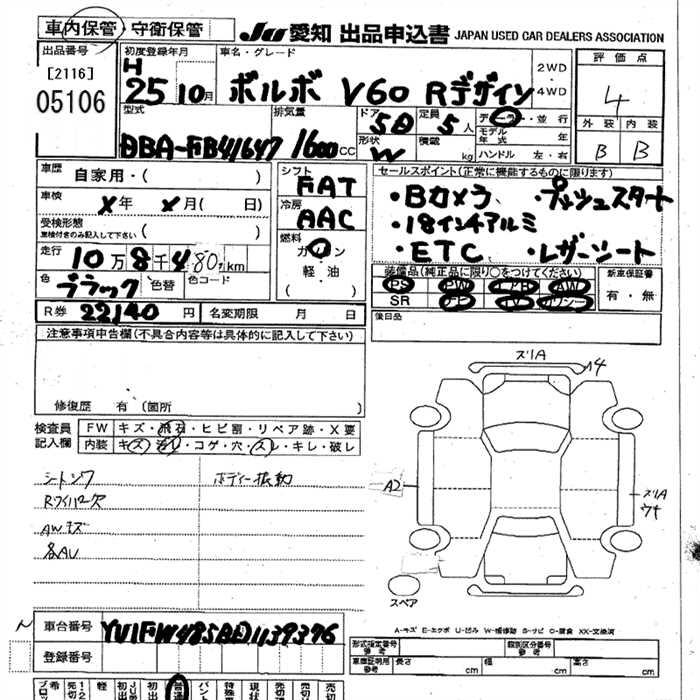 車内保管・守衛保管
JU 愛知 出品申込書 JAPAN USED CAR DEALERS ASSOCIATION
出品番号
[2116]
05106
初度登録年月
H
25 10月
車名・グレード
ボルボ V60 Rデザイン
2WD
・
4WD
評価点
4
外装 内装
B B
型式
DBA-FB4164T
排気量
1600cc
ドア
5D
形状
W
定員
5人
積載
kg
ディーラー・並行
モデル年式 年
ハンドル 左・右
車歴
自家用・( )
車検
X年 X月( 日)
受検形態
車検付きのみ記入して下さい ( )
走行
10万8千480km
色
ブラック
色替
色コード
R券 22140円
名変期限 月 日
シフト
FAT
冷房
AAC
燃料
ガソリン
・
軽・油
( )
セールスポイント(正常に機能するものに限ります)
・Bカメラ ・プッシュスタート
・18インチアルミ
・ETC ・レザーシート
装備品(純正品に限り○をつけてください)
PS PW エアB AW
SR ナビ TV カワシート
新車保証書
有・無
後日品
注意事項申告欄(不具合内容等は具体的に記入して下さい)
修復歴 有 〔箇所 〕
検査員
記入欄
FW キズ・飛石・ヒビ割・リペア跡・X要
内装 キズ・汚レ・コゲ・穴・スレ・キレ・破レ
シートシワ ボディー振動
Rワイパー欠
AWキズ
各AU
ズリA
A2
ズリA
ウキ
スペア
A-キズ E-エクボ U-凹み W-補修跡 S-サビ C-腐食 XX-交換済
車台番号
YV1FW485BD1139376
登録番号
形式指定番号
参考
類別区分番号
参考
車庫証明用
参考
長さ cm 幅 cm 高さ cm